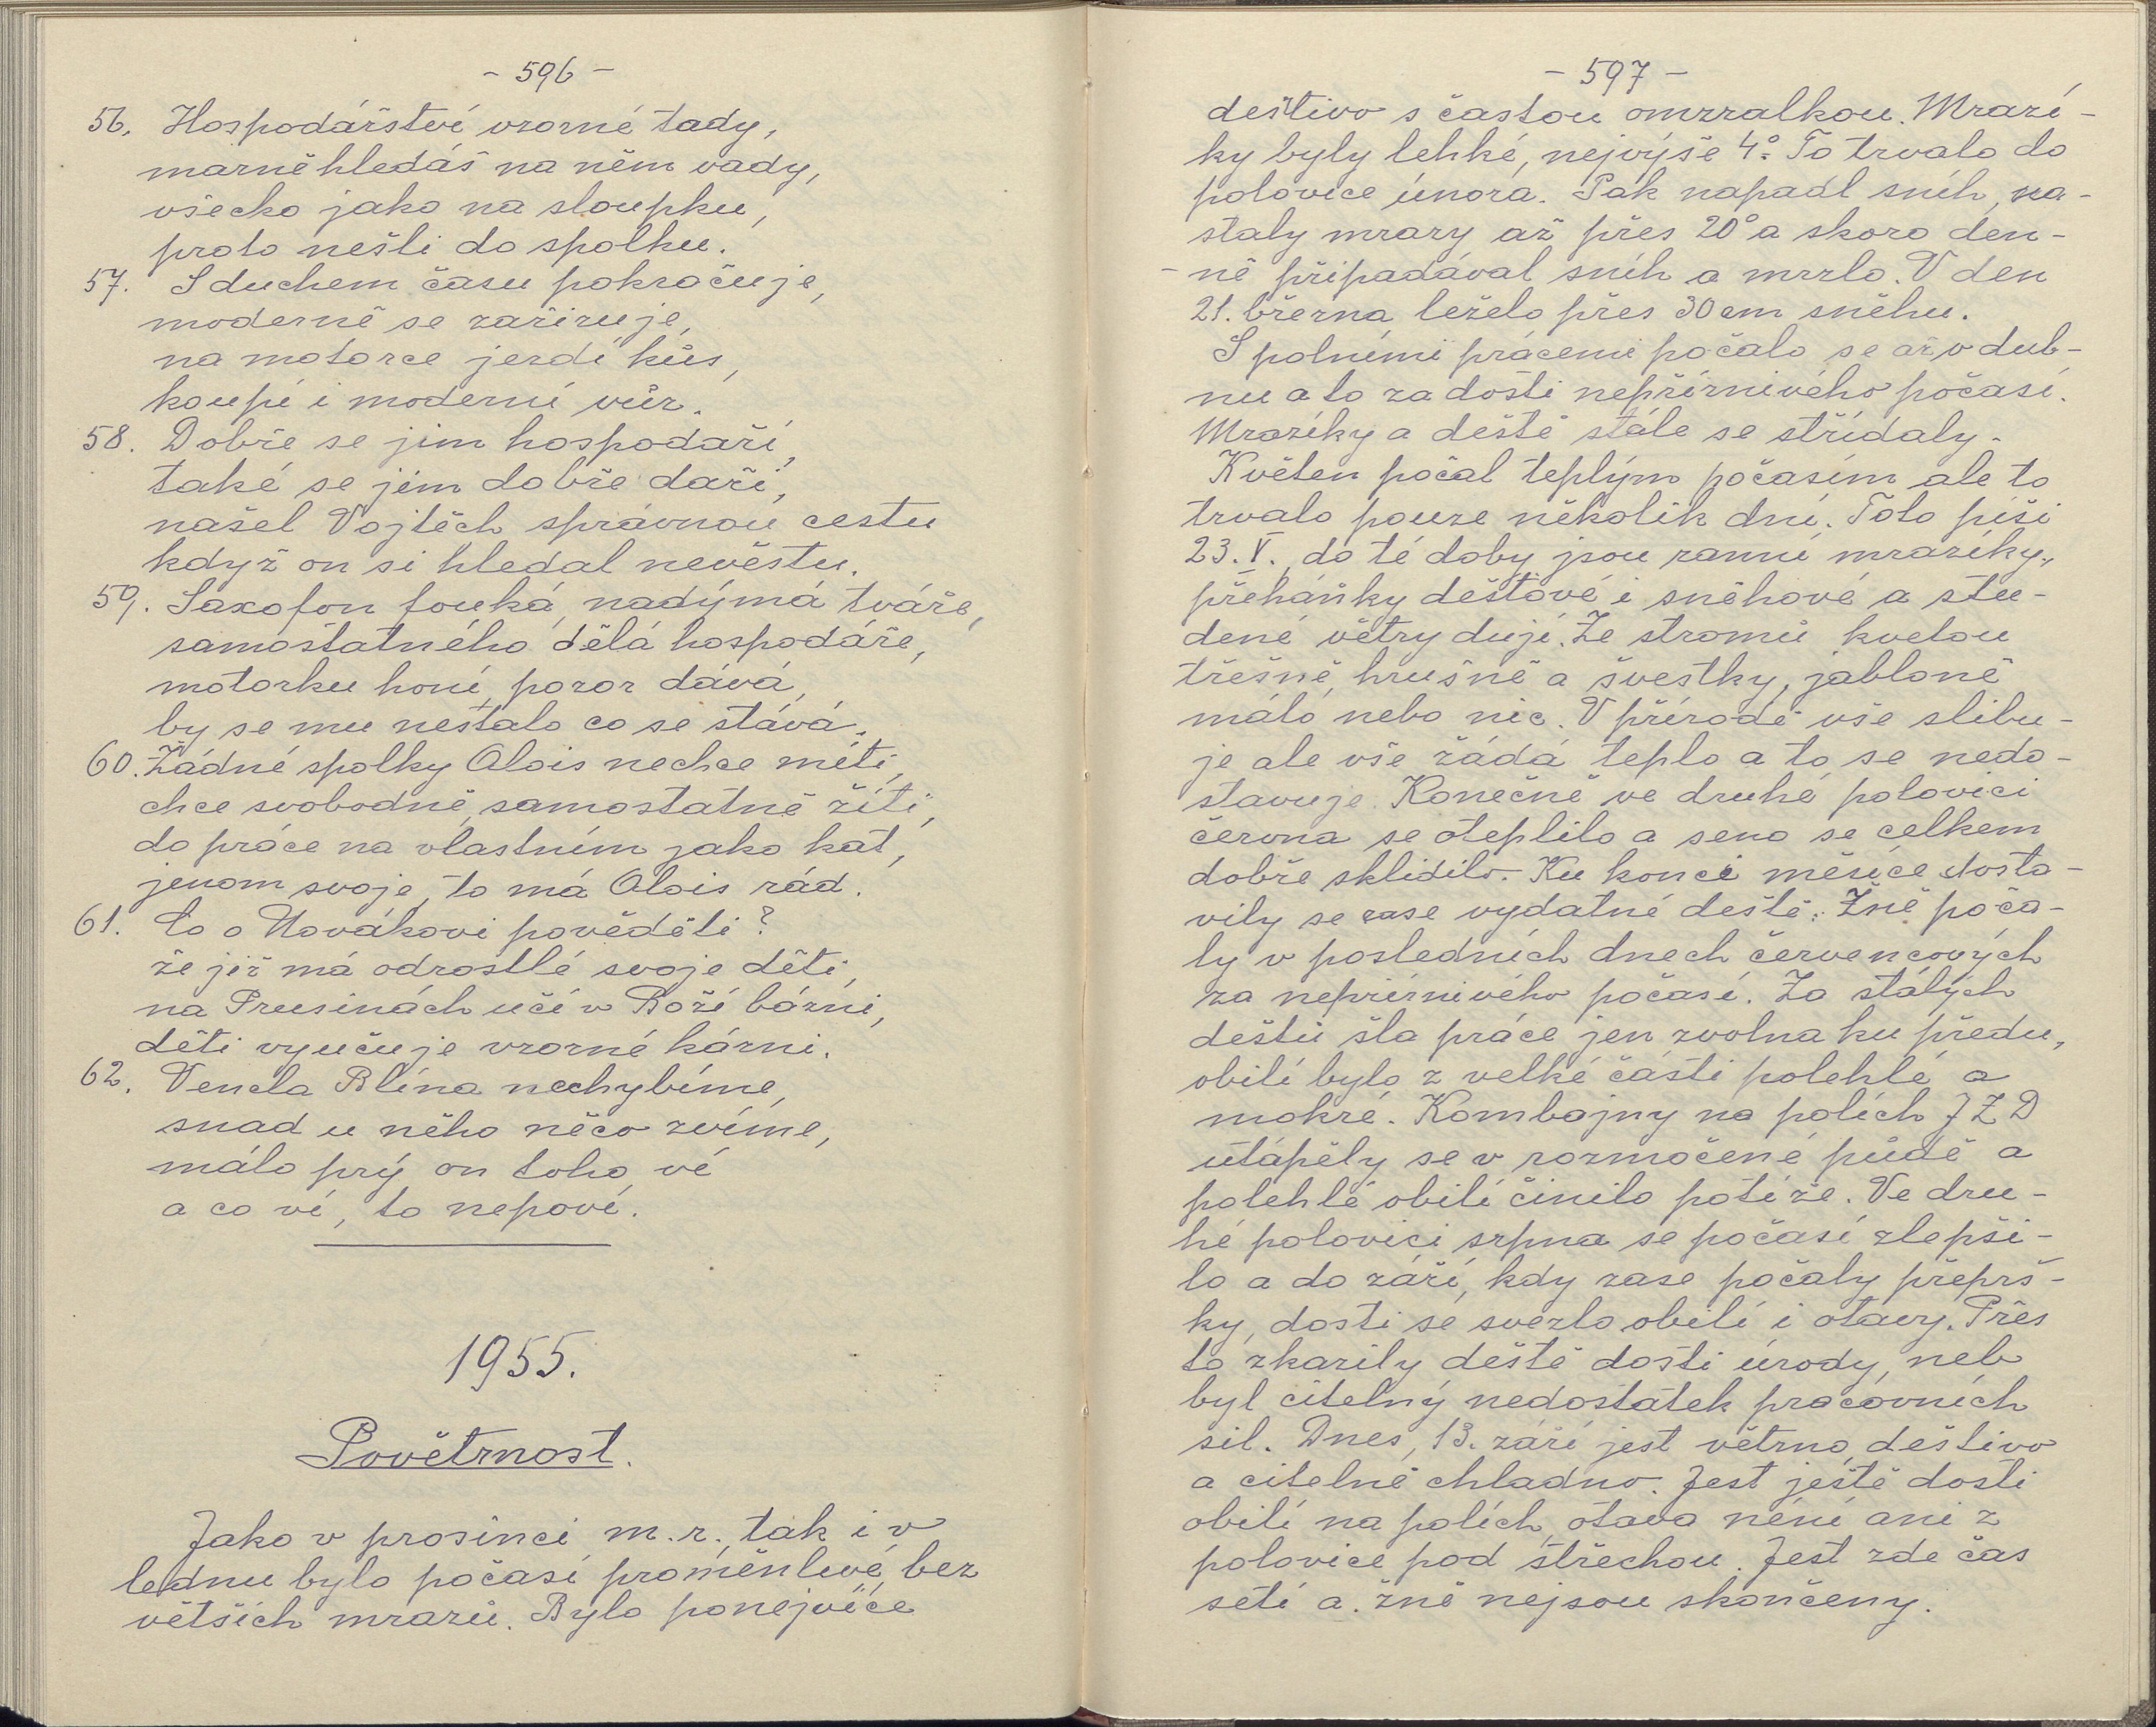 - 596 -
56. Hospodářství vzorné tady,
marně hledáš na něm vady,
všecko jako na sloupku,
proto nešli do spolku.
57. S duchem času pokračuje,
moderně se zařizuje,
na motorce jezdí kůs,
koupí i moderní vůz.
58. Dobře se jim hospodaří,
také se jim dobře daří,
našel Vojtěch správnou cestu
když on si hledal nevěstu.
59. Saxofon fouká, nadýmá tváře,
samostatného dělá hospodáře,
motorku honí, pozor dává,
by se mu nestalo co se stává.
60. Žádné spolky Alois nechce míti,
chce svobodně, samostatně žíti,
do práce na vlastním jako kat,
jenom svoje, to má Alois rád.
61. Co o Novákovi pověděti?
že již má odrostlé svoje děti,
na Prusinách učí v Boží bázni,
děti vyučuje vzorné kázni.
62. Vencla Blína nechybíme,
snad u něho něco zvíme,
málo prý on toho ví
a co ví, to nepoví.
1955.
Povětrnost.
Jako v prosinci m. r., tak i v
lednu bylo počasí proměnlivé, bez
větších mrazů. Bylo ponejvíce
- 597 -
deštivo s častou omrzalkou. Mrazí-
ky byly lehké, nejvýše 4°. To trvalo do
polovice února. Pak napadl sníh, na-
staly mrazy až přes 20° a skoro den-
-ně připadával sníh a mrzlo. V den
21. března leželo přes 30 cm sněhu.
S polními pracemi počalo se až v dub-
nu a to za dosti nepříznivého počasí.
Mrazíky a deště stále se střídaly.
Květen počal teplým počasím ale to
trvalo pouze několik dní. Toto píši
23. V., do té doby jsou ranní mrazíky,
přeháňky dešťové i sněhové a stu-
dené větry dují. Ze stromů kvetou
třešně, hrušně a švestky, jabloně
málo nebo nic. V přírodě vše slibu-
je ale vše žádá teplo a to se nedo-
stavuje. Konečně ve druhé polovici
června se oteplilo a seno se celkem
dobře sklidilo. Ku konci měsíce dosta-
vily se zase vydatné deště. Žně poča-
ly v posledních dnech červencových
za nepříznivého počasí. Za stálých
dešťů šla práce jen zvolna ku předu,
obilí bylo z velké části polehlé a
mokré. Kombajny na polích JZD
utápěly se v rozmočené půdě a
polehlé obilí činilo potíže. Ve dru-
hé polovici srpna se počasí zlepši-
lo a do září, kdy zase počaly přeprš-
ky, dosti se svezlo obilí i otavy. Přes
to zkazily deště dosti úrody, neb
byl citelný nedostatek pracovních
sil. Dnes, 13. září jest větrno, deštivo
a citelně chladno. Jest ještě dosti
obilí na polích, otava není ani z
polovice pod střechou. Jest zde čas
setí a žně nejsou skončeny.